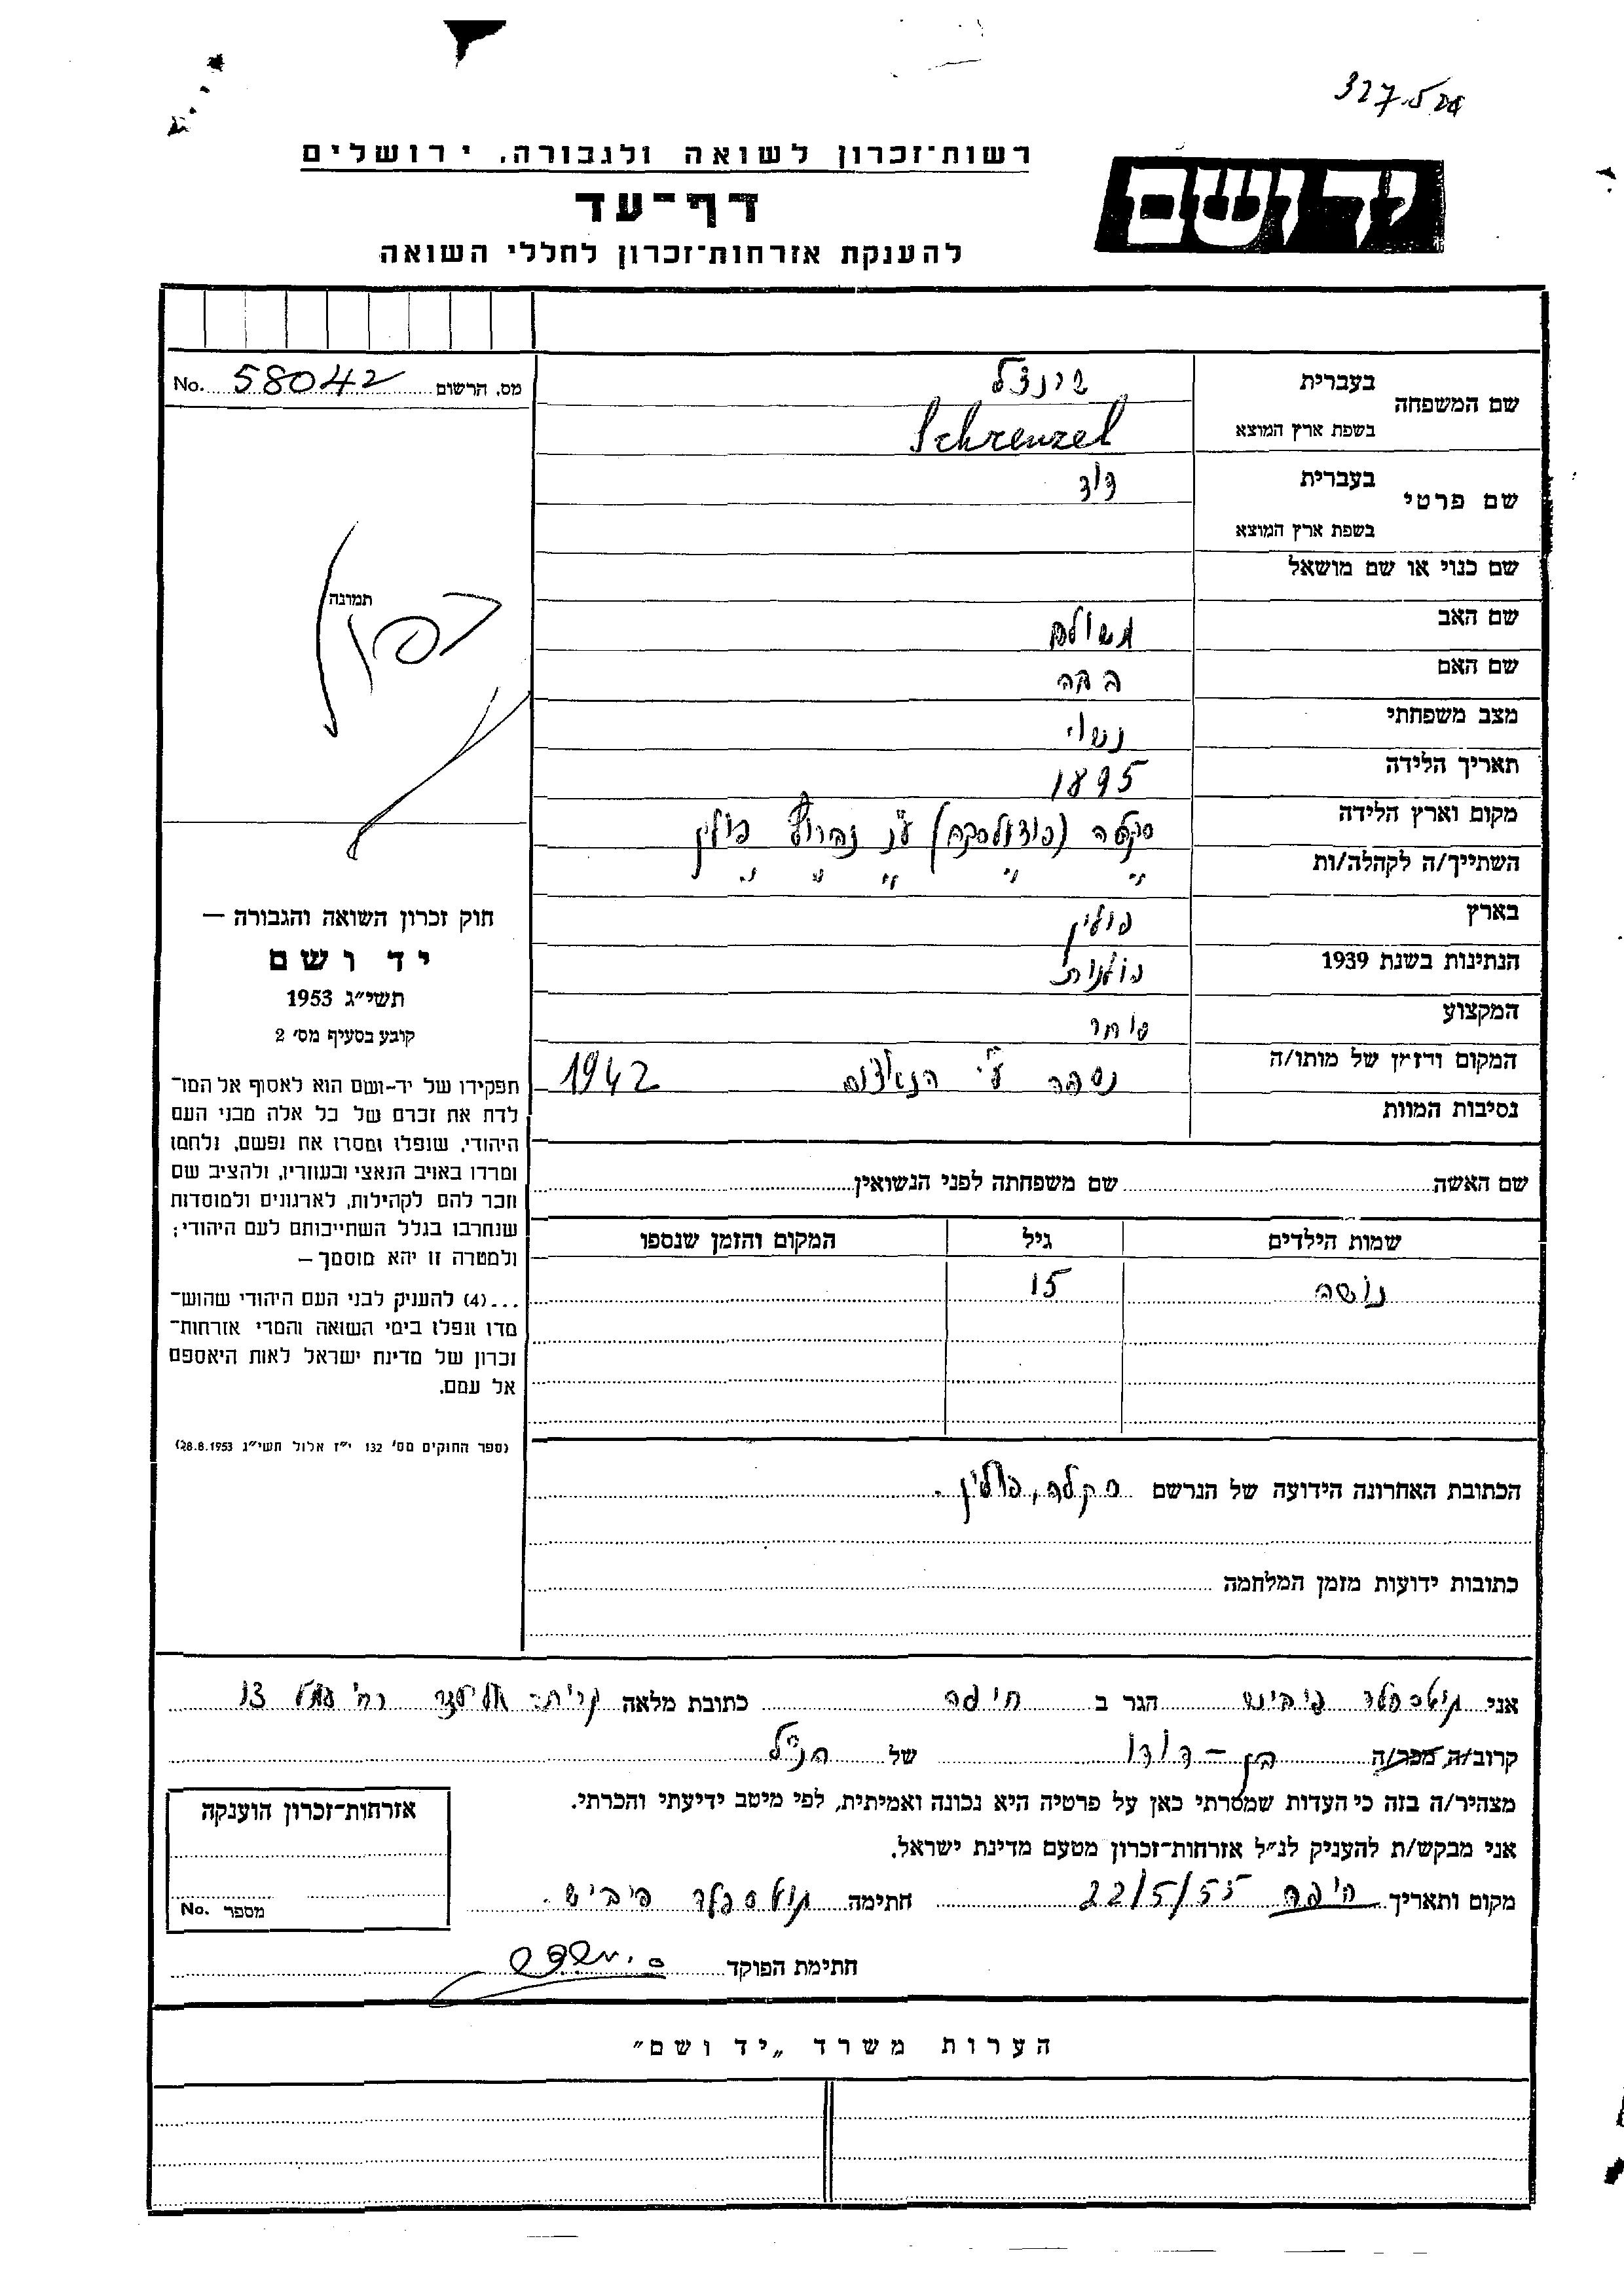 327.5
רשות-זכרון לשואה ולגבורה, ירושלים
יד ושם
דף-עד
להענקת אזרחות-זכרון לחללי השואה
מס. הרשום 58042 No.
שם המשפחה
בעברית שרנצל
בשפת ארץ המוצא Schrenzel
שם פרטי
בעברית דוד
בשפת ארץ המוצא
שם כנוי או שם מושאל
שם האב משולם
שם האם
מצב משפחתי נשוי
תאריך הלידה 1895
מקום וארץ הלידה סקלה (פודולסקה) ע"נ זברוץ פולין
השתייך/ה לקהלה/ות " " " " "
בארץ פולין
הנתינות בשנת 1939 פולנית
המקצוע סוחר
המקום והזמן של מותו/ה נספה ע"י הנאצים 1942
נסיבות המוות
תמונה
חוק זכרון השואה והגבורה —
יד ושם
תשי"ג 1953
קובע בסעיף מס' 2
תפקידו של יד-ושם הוא לאסוף אל המו־
לדת את זכרם של כל אלה מבני העם
היהודי, שנפלו ומסרו את נפשם, נלחמו
ומרדו באויב הנאצי ובעוזריו, ולהציב שם
וזכר להם לקהילות, לארגונים ולמוסדות
שנחרבו בגלל השתייכותם לעם היהודי;
ולמטרה זו יהא מוסמך —
...(4) להעניק לבני העם היהודי שהוש־
מדו ונפלו בימי השואה והמרי אזרחות־
זכרון של מדינת ישראל לאות היאספם
אל עמם.
(ספר החוקים מס' 132 י"ז אלול תשי"ג 28.8.1953)
שם האשה שם משפחתה לפני הנשואין
שמות הילדים גיל המקום והזמן שנספו
נושה 15
הכתובת האחרונה הידועה של הנרשם סקלה, פולין.
כתובות ידועות מזמן המלחמה
אני פייביש הגר ב חיפה כתובת מלאה קרית אליעזר רח' 13
קרוב/ה מכר/ה בן-דודו של הנ"ל
מצהיר/ה בזה כי העדות שמסרתי כאן על פרטיה היא נכונה ואמיתית, לפי מיטב ידיעתי והכרתי.
אני מבקש/ת להעניק לנ"ל אזרחות-זכרון מטעם מדינת ישראל.
מקום ותאריך חיפה 22/5/55 חתימה פייביש.
חתימת הפוקד
אזרחות-זכרון הוענקה
מספר No.
הערות משרד „יד ושם"